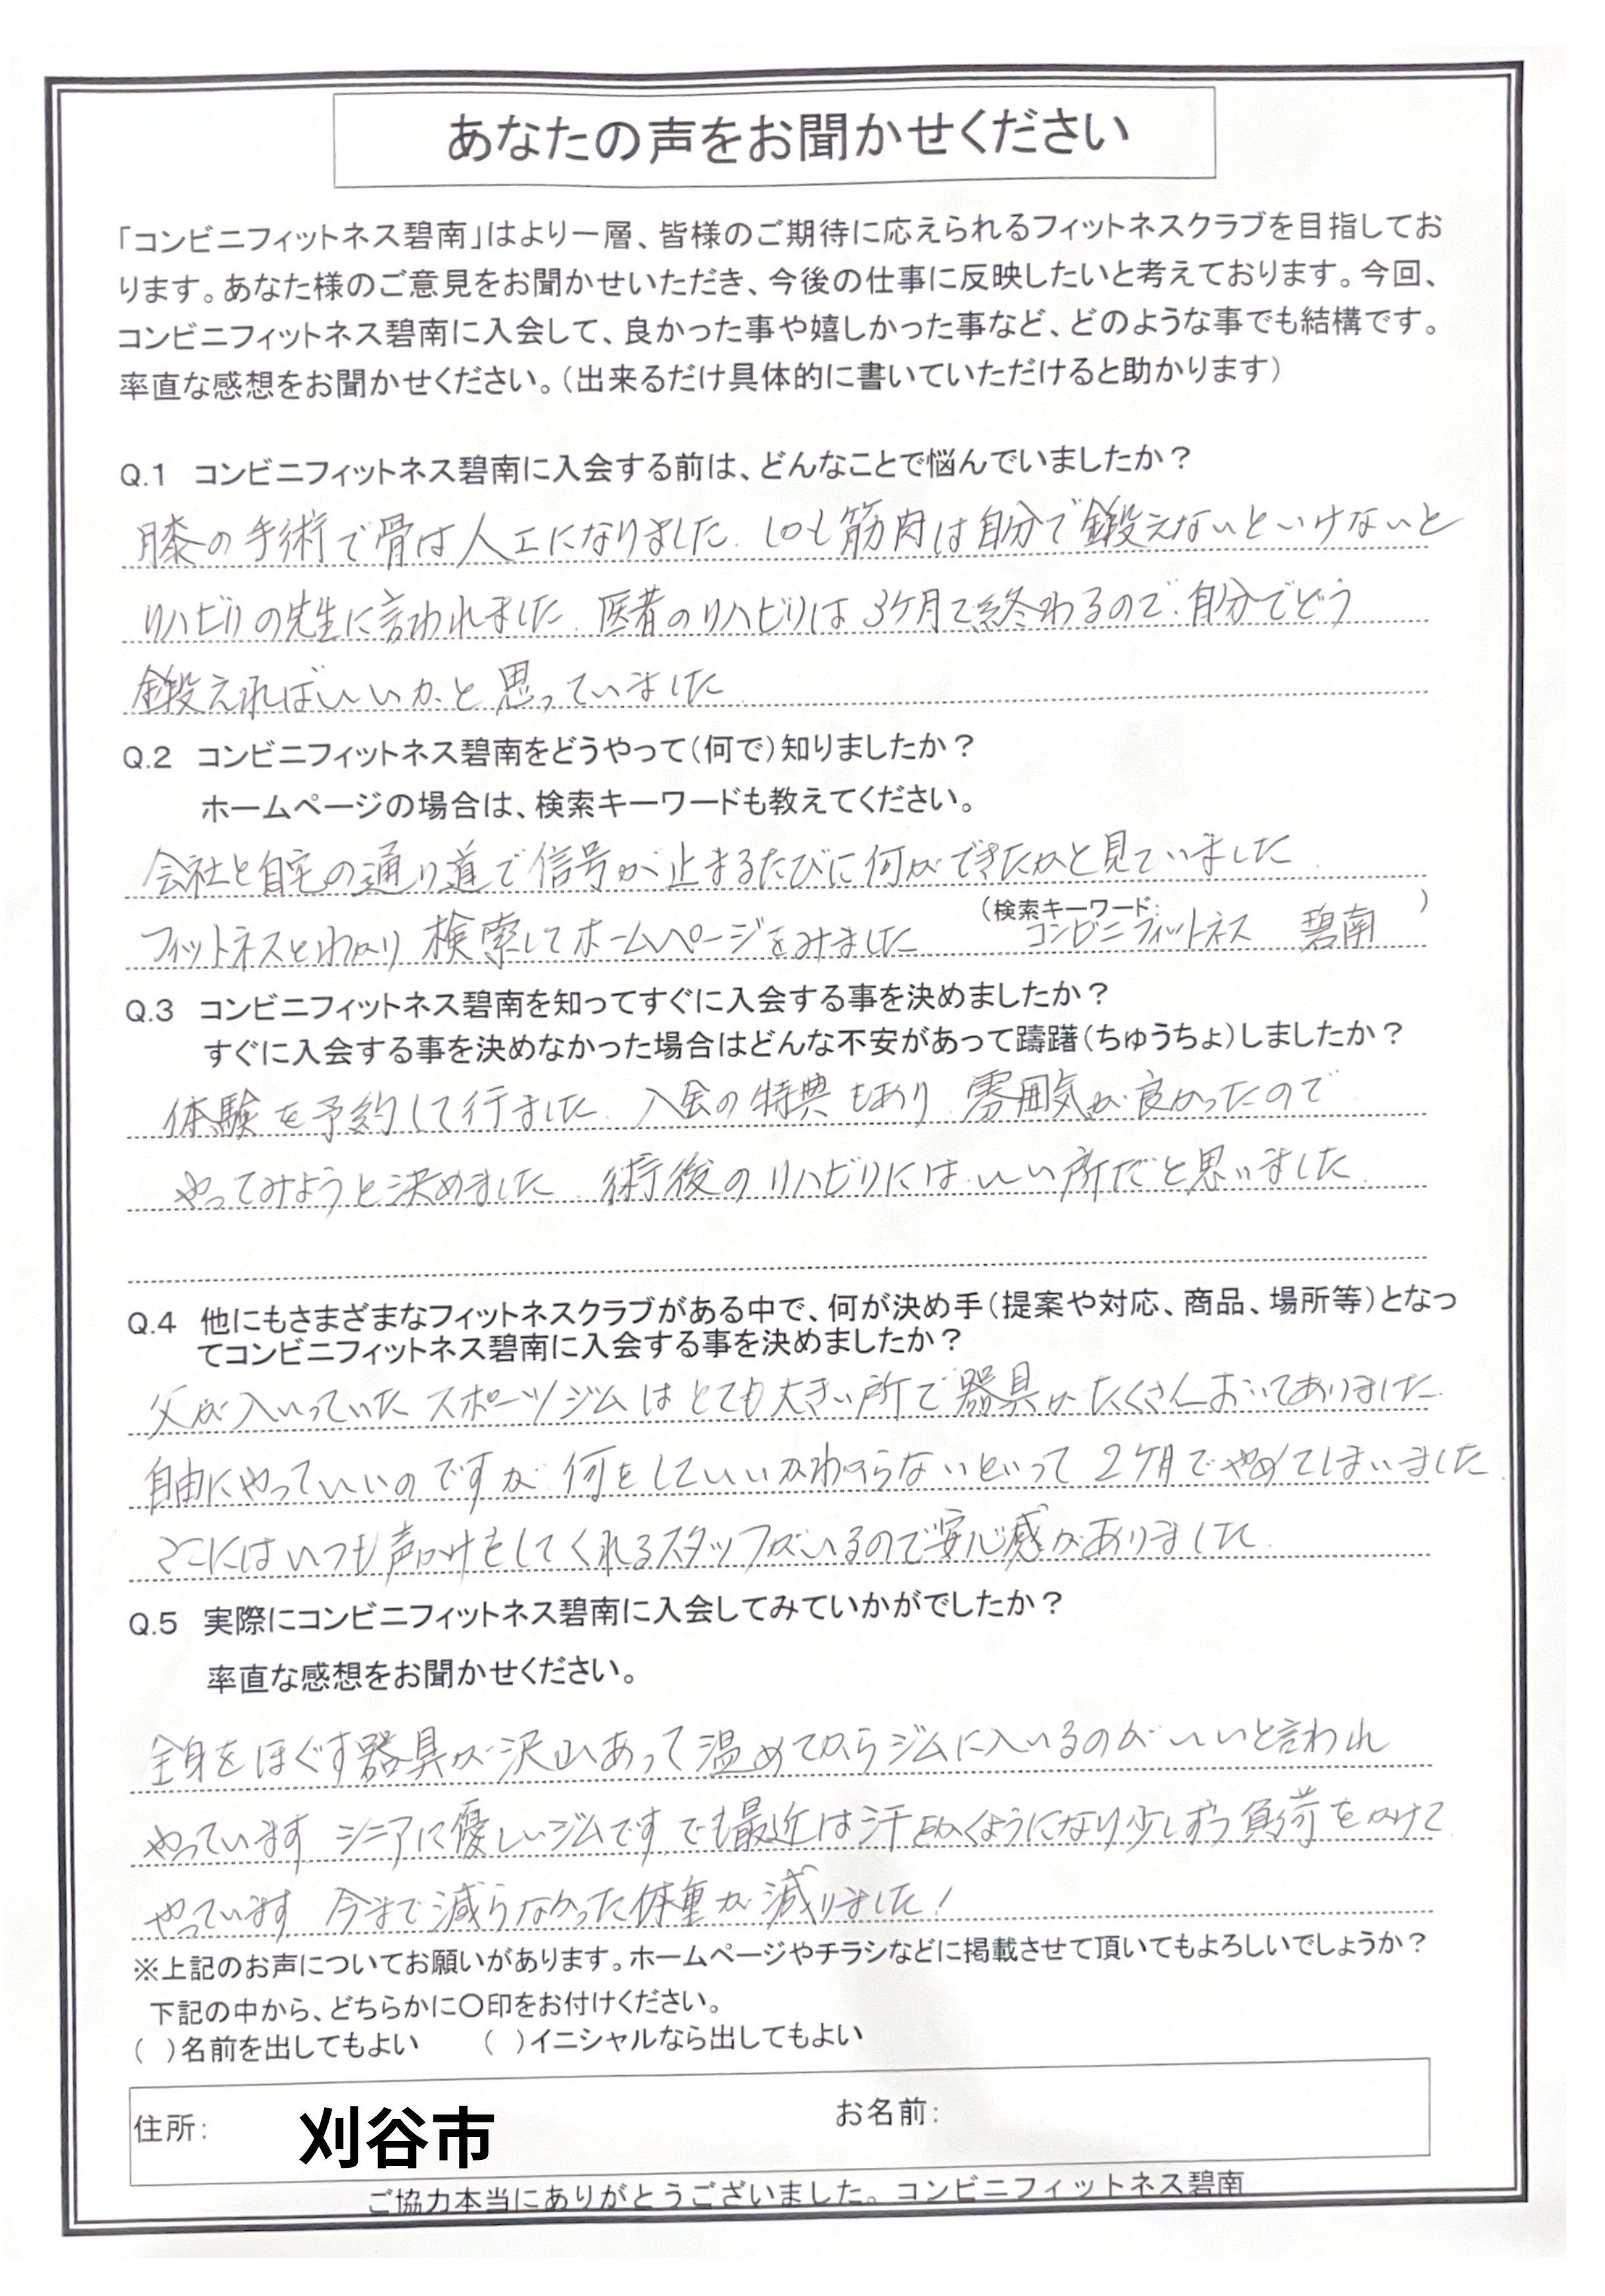 あなたの声をお聞かせください
「コンビニフィットネス碧南」はより一層、皆様のご期待に応えられるフィットネスクラブを目指してお
ります。あなた様のご意見をお聞かせいただき、今後の仕事に反映したいと考えております。今回、
コンビニフィットネス碧南に入会して、良かった事や嬉しかった事など、どのような事でも結構です。
率直な感想をお聞かせください。（出来るだけ具体的に書いていただけると助かります）
Q.1 コンビニフィットネス碧南に入会する前は、どんなことで悩んでいましたか？
膝の手術で骨は人工になりました でも筋肉は自分で鍛えないといけないと
リハビリの先生に言われました 医者のリハビリは3ケ月で終わるので 自分でどう
鍛えればいいかと思っていました
Q.2 コンビニフィットネス碧南をどうやって（何で）知りましたか？
ホームページの場合は、検索キーワードも教えてください。
会社と自宅の通り道で信号が止まるたびに何ができたかと見ていました
フィットネスとわかり 検索してホームページをみました （検索キーワード: コンビニフィットネス 碧南 ）
Q.3 コンビニフィットネス碧南を知ってすぐに入会する事を決めましたか？
すぐに入会する事を決めなかった場合はどんな不安があって躊躇（ちゅうちょ）しましたか？
体験を予約して行ました 入会の特典もあり 雰囲気が良かったので
やってみようと決めました 術後のリハビリにはいい所だと思いました
Q.4 他にもさまざまなフィットネスクラブがある中で、何が決め手（提案や対応、商品、場所等）となっ
てコンビニフィットネス碧南に入会する事を決めましたか？
父が入いっていた スポーツジムはとても大きい所で器具がたくさんおいてありました
自由にやっていいのですが 何をしていいかわからないといって 2ケ月でやめてしまいました
ここにはいつも声かけをしてくれるスタッフがいるので安心感がありました
Q.5 実際にコンビニフィットネス碧南に入会してみていかがでしたか？
率直な感想をお聞かせください。
全身をほぐす器具が沢山あって温めてからジムに入いるのがいいと言われ
やっています シニアに優しいジムです でも最近は汗をかくようになり少しずつ負荷をかけて
やっています 今まで減らなかった体重が減りました！
※上記のお声についてお願いがあります。ホームページやチラシなどに掲載させて頂いてもよろしいでしょうか？
下記の中から、どちらかに〇印をお付けください。
（ ）名前を出してもよい （ ）イニシャルなら出してもよい
住所: 刈谷市 お名前:
ご協力本当にありがとうございました。コンビニフィットネス碧南